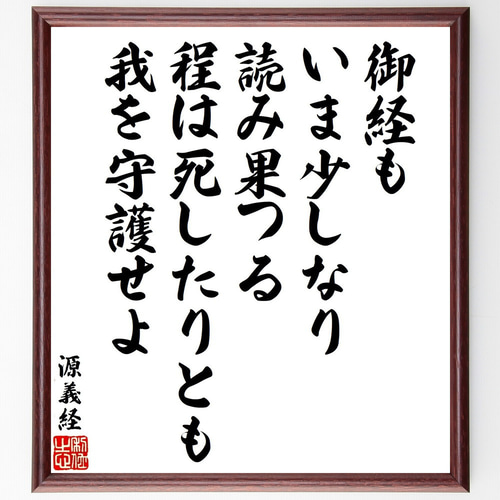 御経も
いま少しなり
読み果つる
程は死したりとも
我を守護せよ
源義経